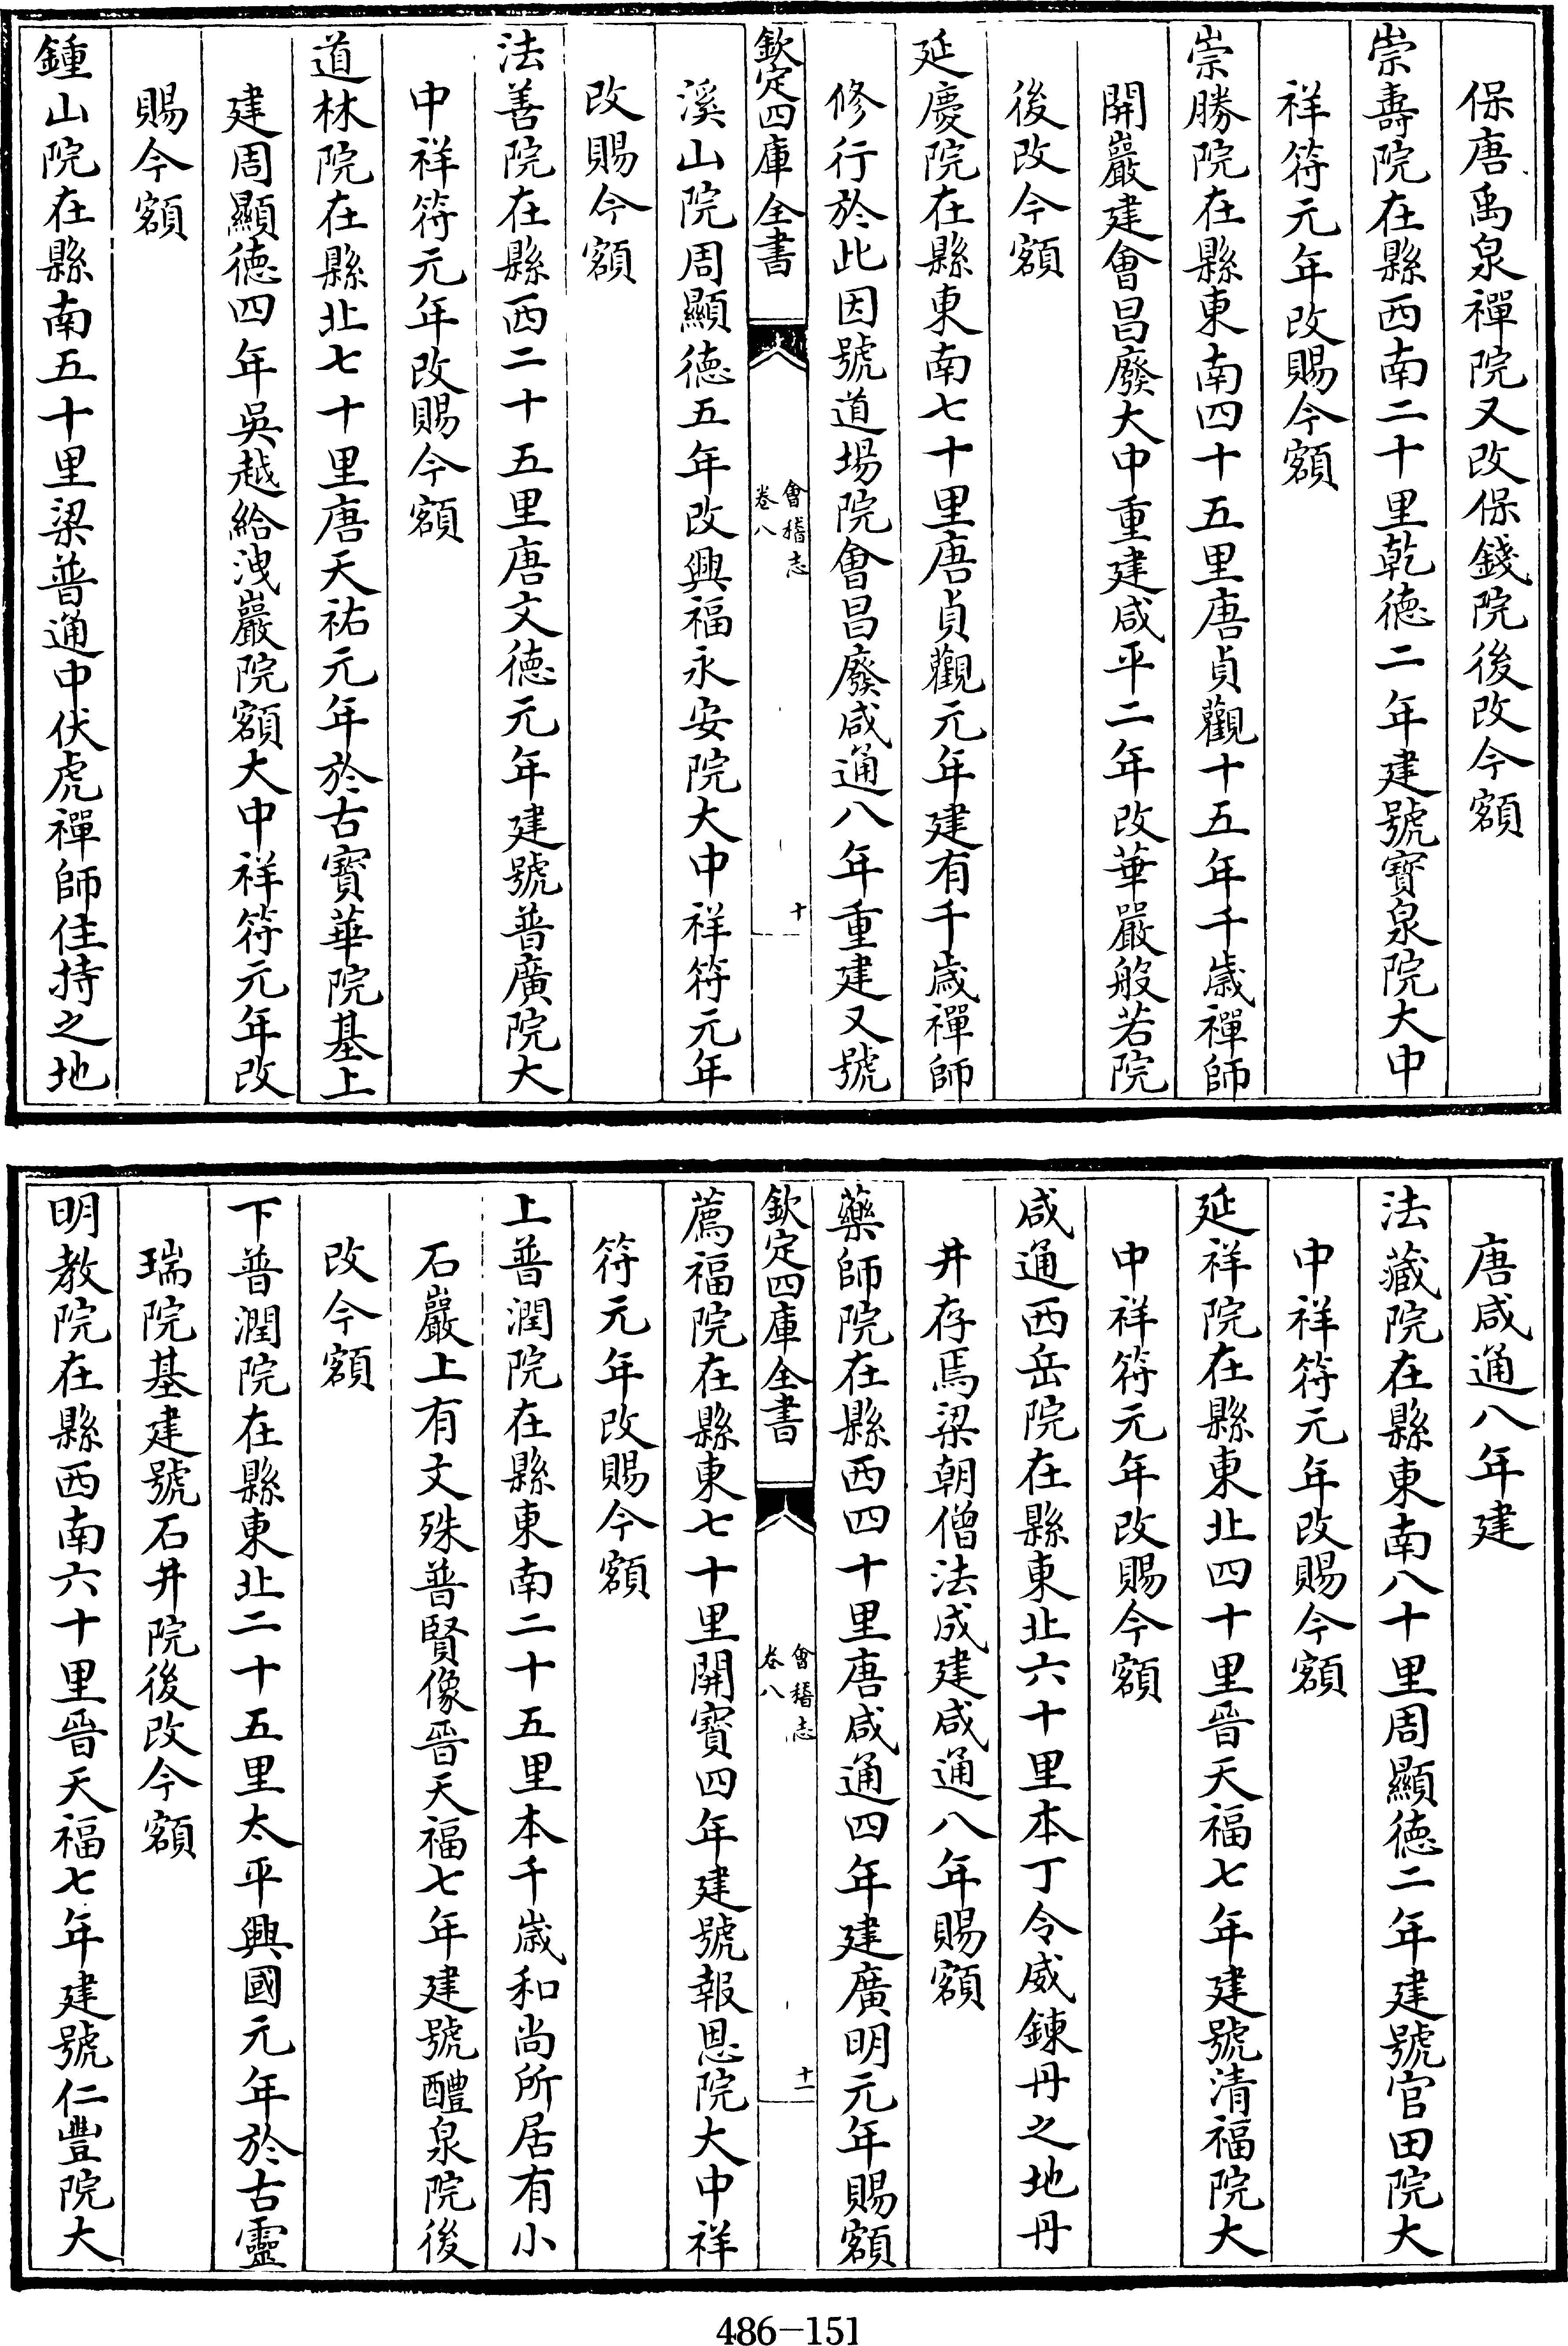 保唐禹泉禪院又改保錢院後改今額
崇壽院在縣西南二十里乾徳二年建號寳泉院大中
祥符元年改賜今額
崇勝院在縣東南四十五里唐貞觀十五年千歳禪師
開巖建會昌廢大中重建咸平二年改華嚴般若院
後改今額
延慶院在縣東南七十里唐貞觀元年建有千歳禪師
修行於此因號道場院會昌廢咸通八年重建又號
欽定四庫全書
會稽志
卷八
十
溪山院周顯徳五年改興福永安院大中祥符元年
改賜今額
法善院在縣西二十五里唐文徳元年建號普廣院大
中祥符元年改賜今額
道林院在縣北七十里唐天祐元年於古寳華院基上
建周顯徳四年吳越給洩巖院額大中祥符元年改
賜今額
鍾山院在縣南五十里梁普通中伏虎禪師住持之地
唐咸通八年建
法藏院在縣東南八十里周顯徳二年建號官田院大
中祥符元年改賜今額
延祥院在縣東北四十里晉天福七年建號清福院大
中祥符元年改賜今額
咸通西岳院在縣東北六十里本丁令威鍊丹之地丹
井存焉梁朝僧法成建咸通八年賜額
藥師院在縣西四十里唐咸通四年建廣明元年賜額
欽定四庫全書
會稽志
卷八
十一
薦福院在縣東七十里開寳四年建號報恩院大中祥
符元年改賜今額
上普潤院在縣東南二十五里本千歳和尚所居有小
石巖上有文殊普賢像晉天福七年建號醴泉院後
改今額
下普潤院在縣東北二十五里太平興國元年於古靈
瑞院基建號石井院後改今額
明教院在縣西南六十里晉天福七年建號仁豐院大
486-151